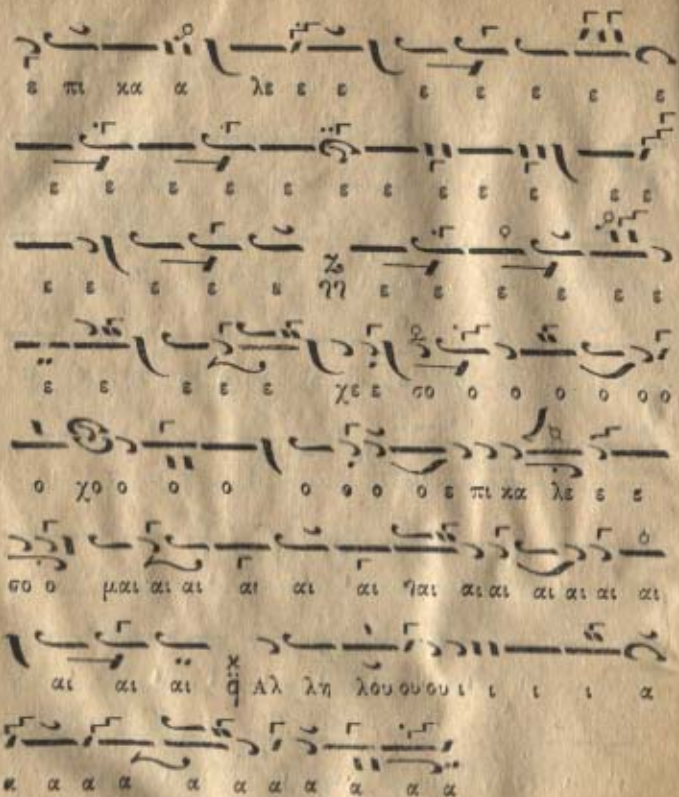 ε πι κα α λε ε ε ε ε ε ε ε
ε ε ε ε ε ε ε ε ε ε ε ε
ε ε ε ε ε ηη ε ε ε ε ε ε
ε ε ε ε ε χε ε σο ο ο ο ο ο ο
ο χο ο ο ο ο ο ο ο ε πι κα λε ε ε
σο ο μαι αι αι αι αι αι ηαι αι αι αι αι αι αι
αι αι αι Αλ λη λου ου ου ι ι ι ι α
α α α α α α α α α α α